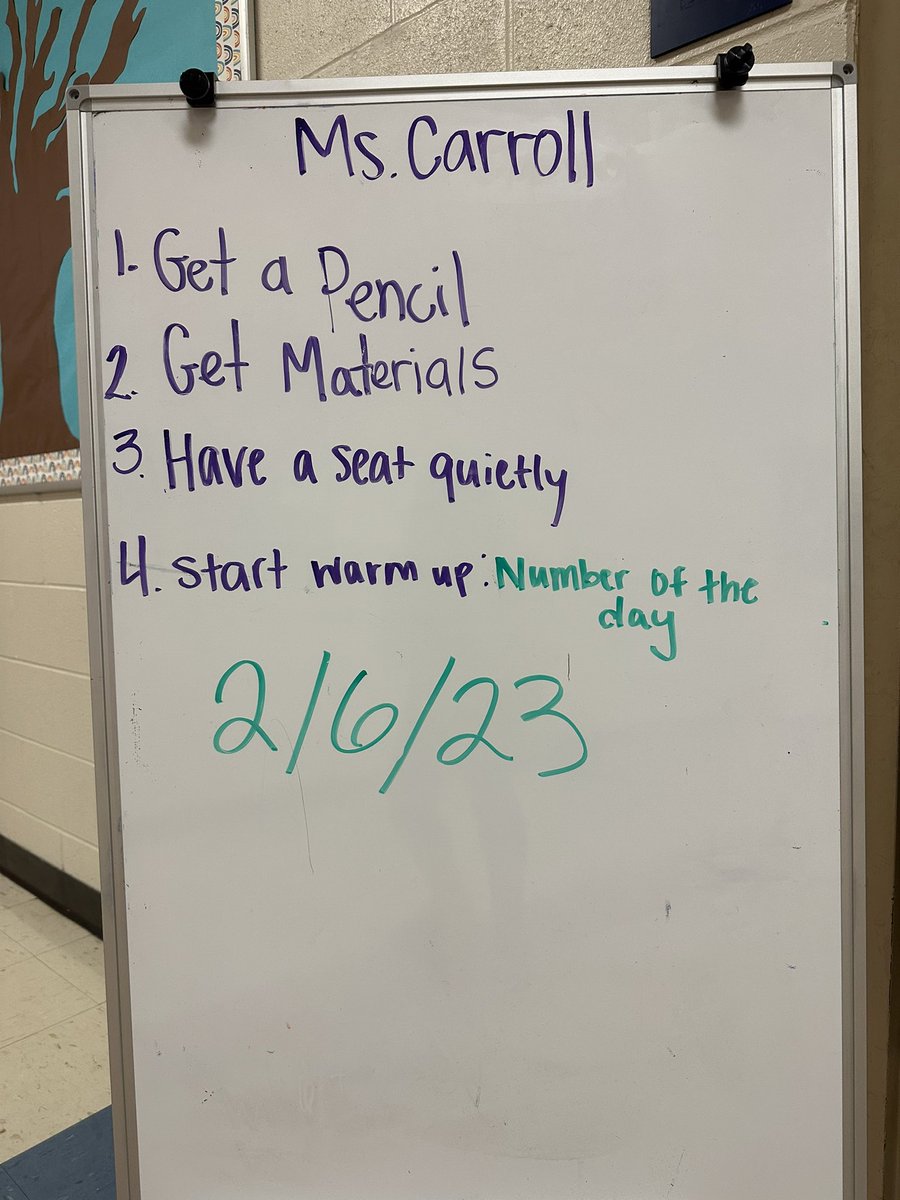 Ms. Carroll
1. Get a Pencil
2. Get Materials
3. Have a seat quietly
4. Start warm up: Number of the
day
2/6/23